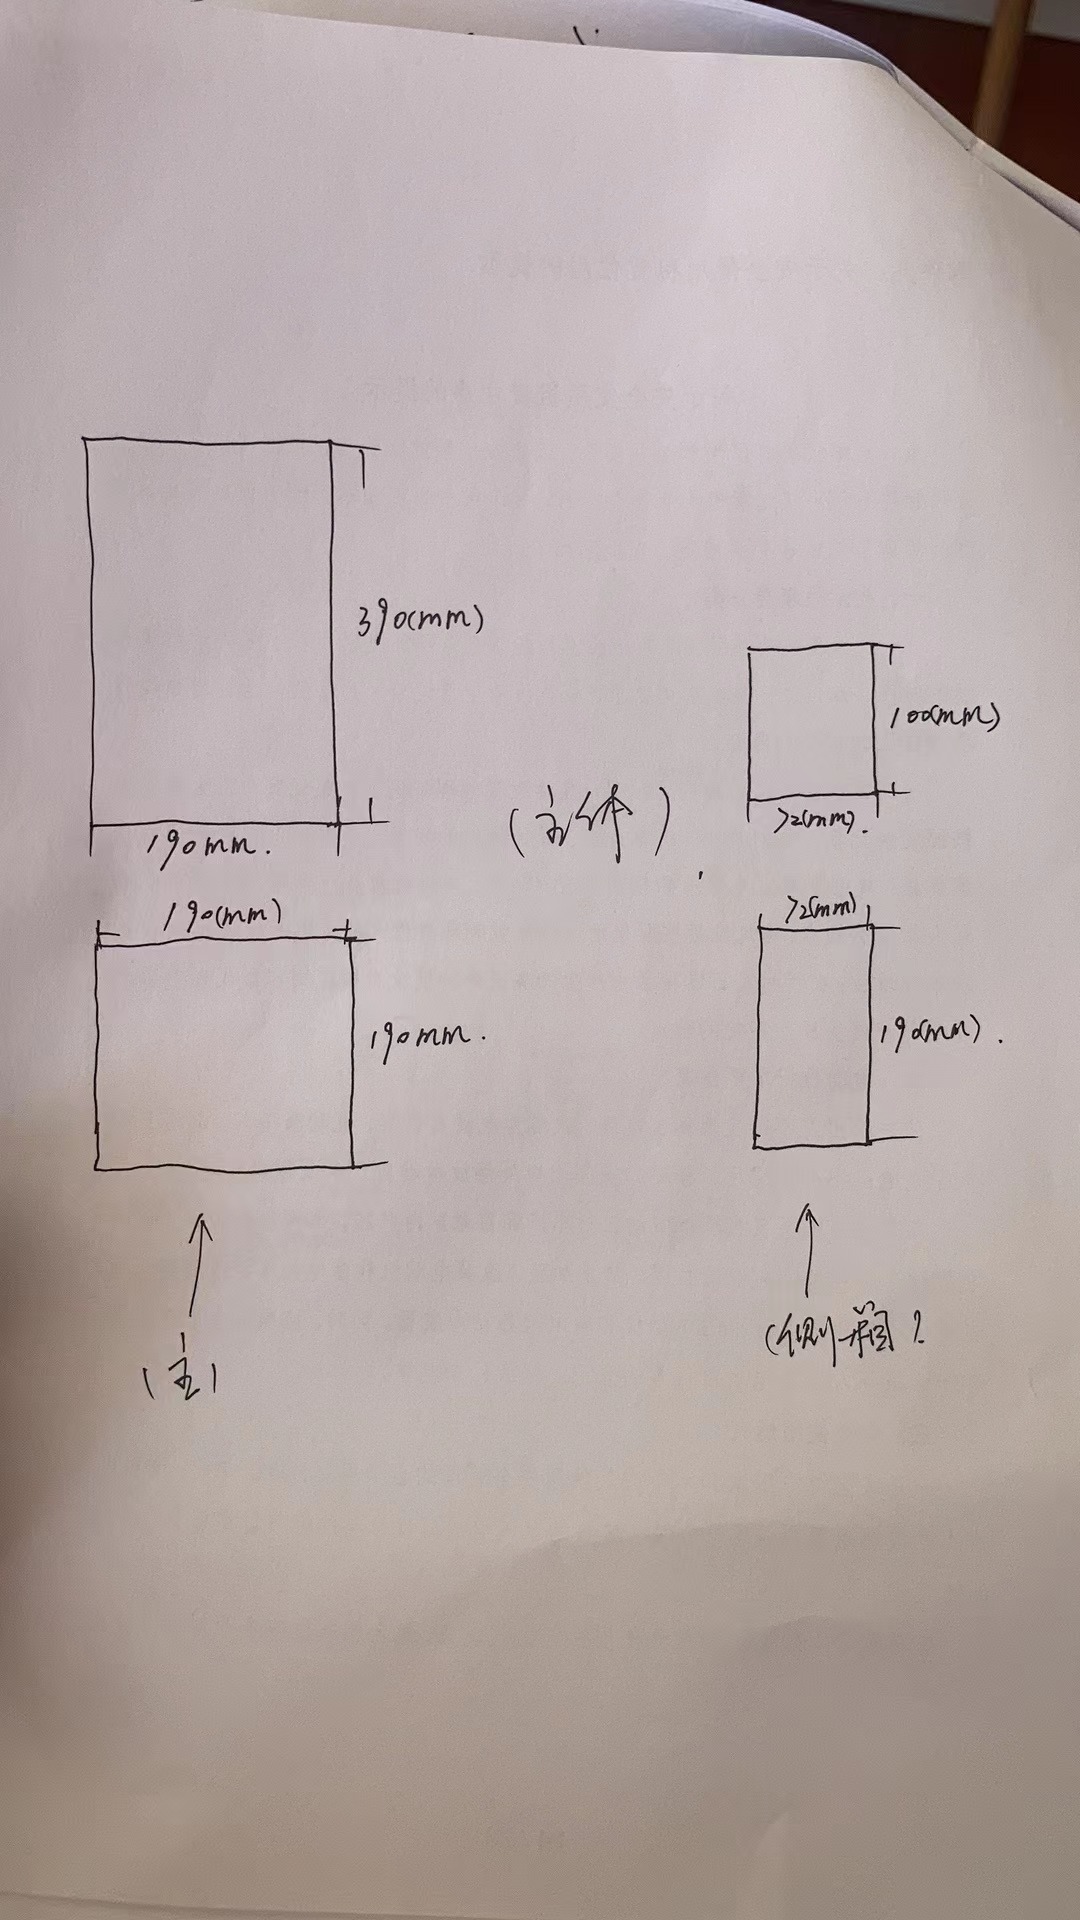 390(mm)
190mm.
100(mm)
72(mm).
(主体).
190(mm)
190mm.
72(mm)
190(mm).
(主)
(侧厢)